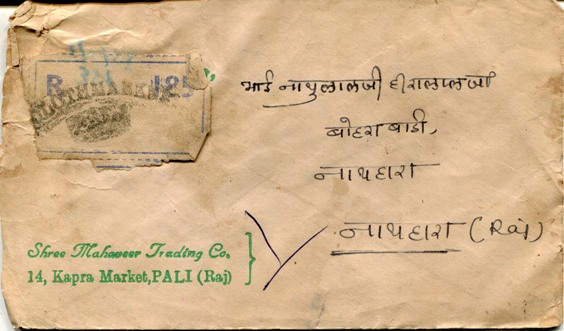 R 185
CLOTH MARKET
भाई नाथुलालजी हीरालालजी
बोहरा बाडी,
नाथद्वारा
नाथद्वारा (Raj)
Shree Mahaveer Trading Co.
14, Kapra Market, PALI (Raj)